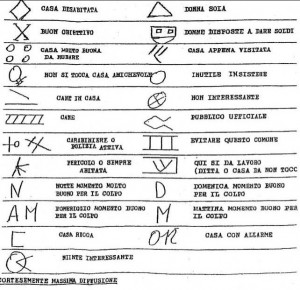 CASA DISABITATA
DONNA SOLA
BUON OBIETTIVO
DONNE DISPOSTE A DARE SOLDI
CASA MOLTO BUONA
DA RUBARE
CASA APPENA VISITATA
NON SI TOCCA CASA AMICHEVOLE
INUTILE INSISTERE
CANE IN CASA
NON INTERESSANTE
CANE
PUBBLICO UFFICIALE
CARABINIERE O
POLIZIA ATTIVA
EVITARE QUESTO COMUNE
PERICOLO O SEMPRE
ABITATA
QUI SI DA LAVORO
(DITTA O CASA DA NON TOCC
N
NOTTE MOMENTO MOLTO
BUONO PER IL COLPO
D
DOMENICA MOMENTO BUONO
PER IL COLPO
AM
POMERIGGIO MOMENTO BUONO
PER IL COLPO
M
MATTINA MOMENTO BUONO PER
IL COLPO
CASA RICCA
OK
CASA CON ALLARME
NIENTE INTERESSANTE
CORTESEMENTE MASSIMA DIFFUSIONE